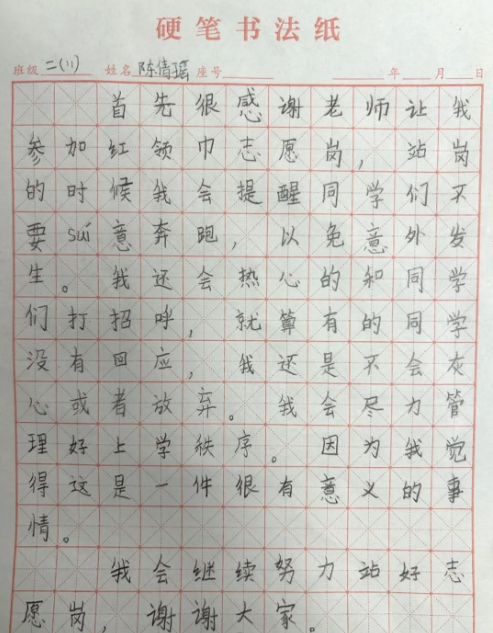 硬笔书法纸
班级 二(11) 姓名 陈倩瑶 座号 年 月 日
首先很感谢老师让我
参加红领巾志愿岗，站岗
的时候我会提醒同学们不
要suí意奔跑，以免意外发
生。我还会热心的和同学
们打招呼，就算有的同学
没有回应，我还是不会灰
心或者放弃。我会尽力管
理好上学秩序。因为我觉
得这是一件很有意义的事
情。
我会继续努力站好志
愿岗，谢谢大家。